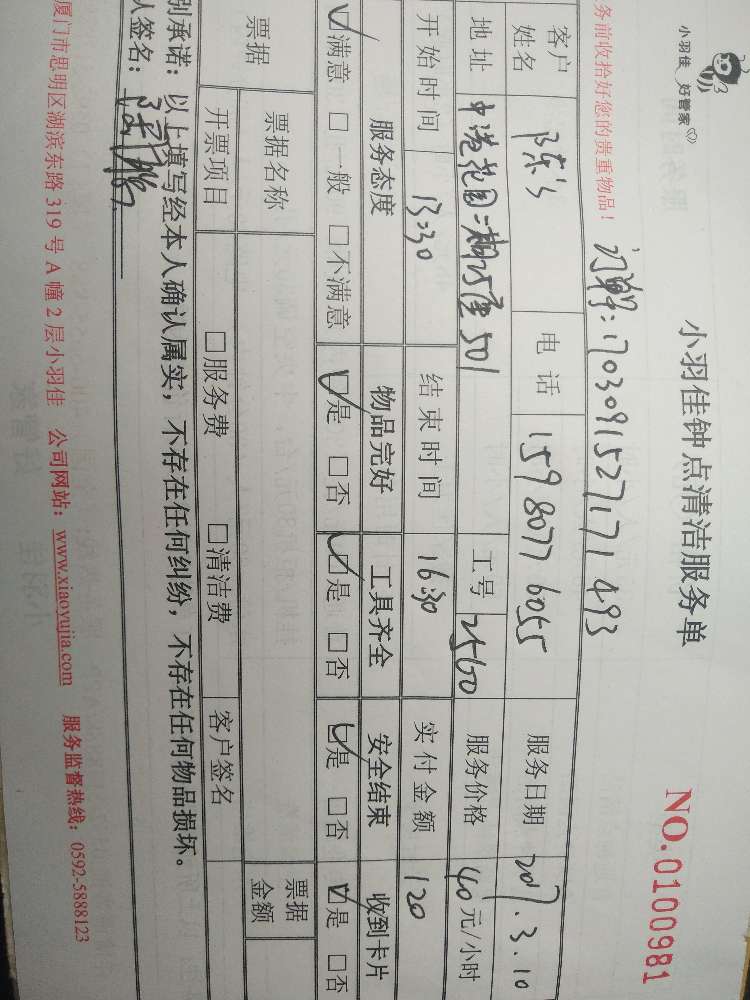 小羽佳 好管家
小羽佳钟点清洁服务单
NO.0100981
务前收拾好您的贵重物品!
1703091527171493
客户姓名 陈 电话 15980776055 服务日期 2017.3.10
地址 中港花园二期 501 工号 2560 服务价格 40元/小时
开始时间 13:30 结束时间 16:30 实付金额 120
服务态度 物品完好 工具齐全 安全结束 收到卡片
☑满意 □一般 □不满意 ☑是 □否 ☑是 □否 ☑是 □否 ☑是 □否
票据 票据名称 票据金额
开票项目 □服务费 □清洁费 客户签名
别承诺:以上填写经本人确认属实,不存在任何纠纷,不存在任何物品损坏。
人签名:
厦门市思明区湖滨东路 319 号 A 幢 2 层小羽佳 公司网站:www.xiaoyujia.com 服务监督热线:0592-5888123